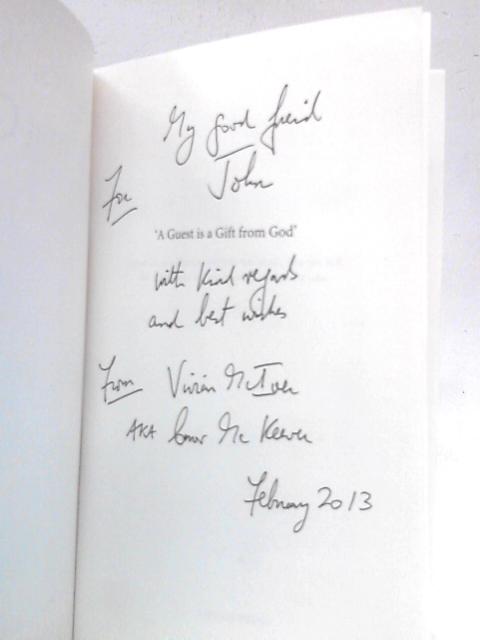 My good freind
For John
'A Guest is a Gift from God'
with kind regards
and best wishes
From Vivian McIver
AKA Conor Mc Keever
February 2013